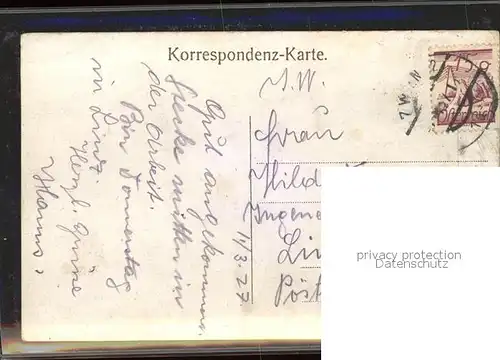 Korrespondenz-Karte.
11/3.27
Gut angekommen.
Stecke mitten in
der Arbeit.
Bin Donnerstag
in Linz.
Herzl. Grüsse
Hanns.
I.W.
Frau
Hild
Ingen
Lin
Post
privacy protection
Datenschutz